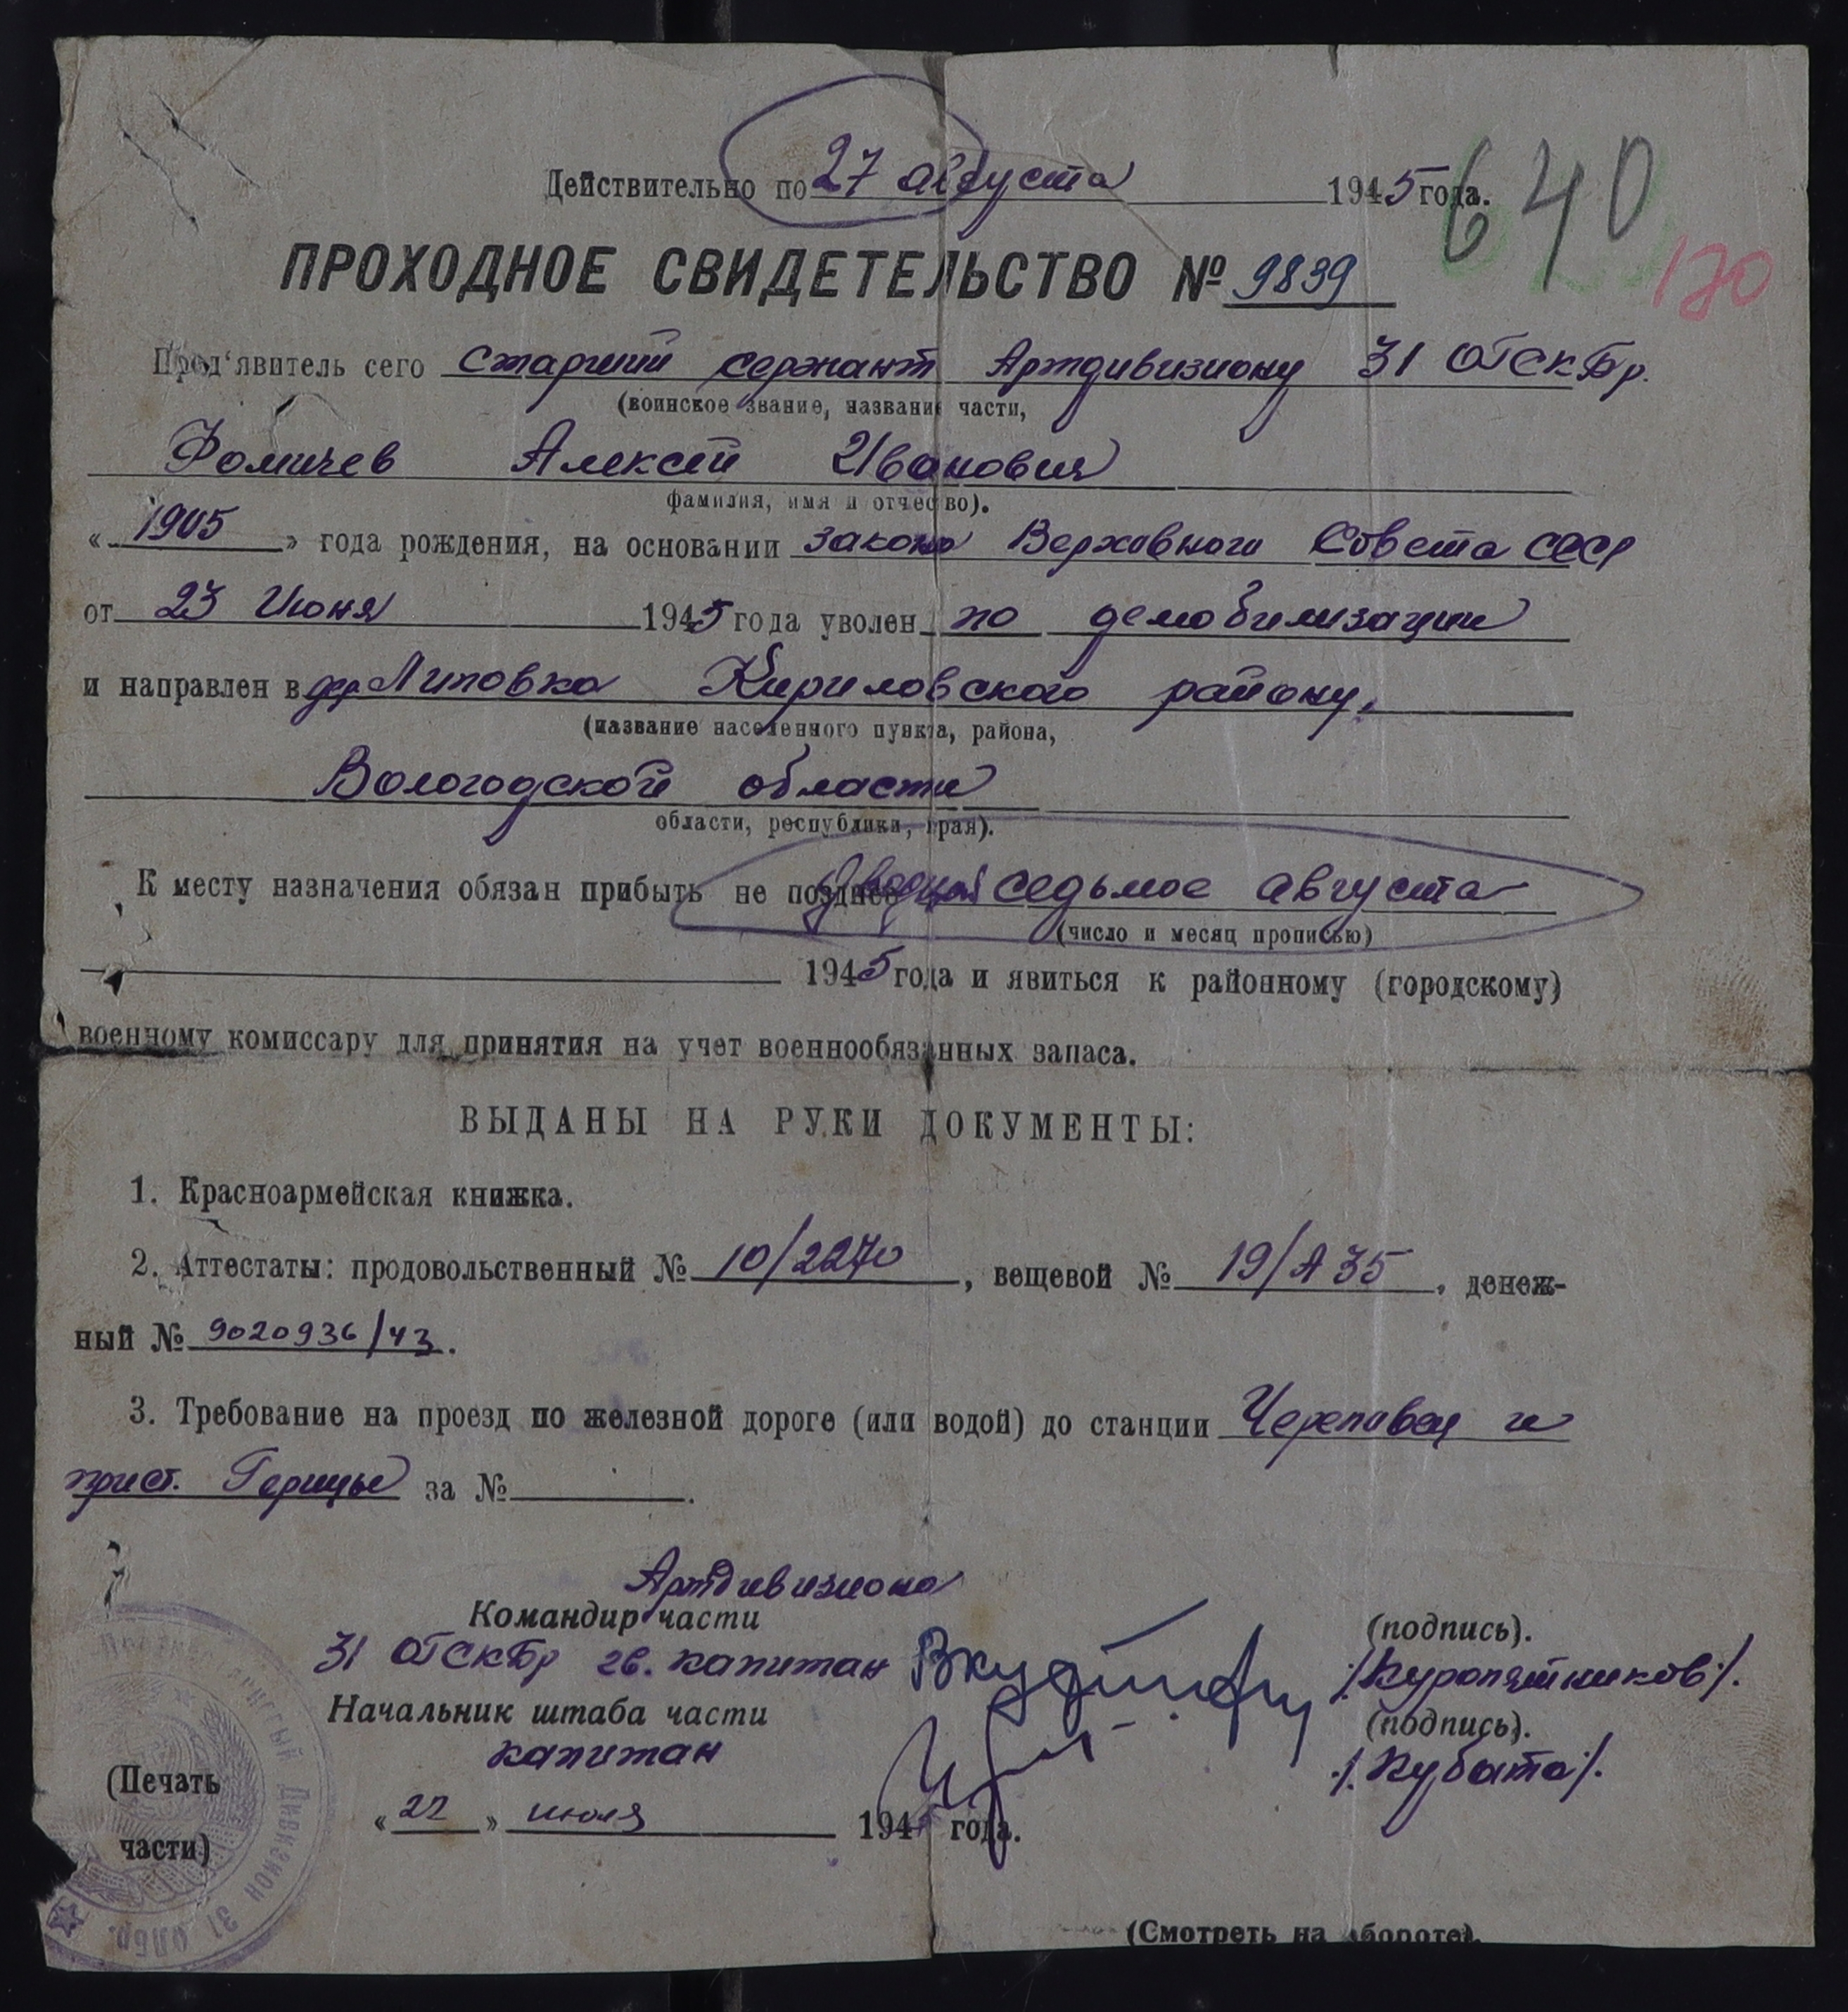 Действительно по 27 августа 1945 года.
640
170
ПРОХОДНОЕ СВИДЕТЕЛЬСТВО № 9839
Пред'явитель сего Старший сержант Артдивизиону 31 ОГСКБр.
(воинское звание, название части,
Фомичев Алексей Иванович
фамилия, имя и отчество).
« 1905 » года рождения, на основании закона Верховного Совета СССР
от 23 Июня 1945 года уволен по демобилизации
и направлен в дер Липовка Кириловского району.
(название населенного пункта, района,
Вологодской области
области, республики, края).
К месту назначения обязан прибыть не позднее двадцать седьмое августа
(число и месяц прописью)
1945 года и явиться к районному (городскому)
военному комиссару для принятия на учет военнообязанных запаса.
ВЫДАНЫ НА РУКИ ДОКУМЕНТЫ:
1. Красноармейская книжка.
2. Аттестаты: продовольственный № 10/2270, вещевой № 19/А35, денеж-
ный № 9020936/43.
3. Требование на проезд по железной дороге (или водой) до станции Череповец и
прист. Горицы за №
Артдивизиона
Командир части (подпись).
31 ОГСКБр гв. капитан /Куропятников/.
Начальник штаба части (подпись).
капитан /Кубата/.
(Печать
части)
« 22 » июля 194 года.
Дивизион 31
(Смотреть на обороте).